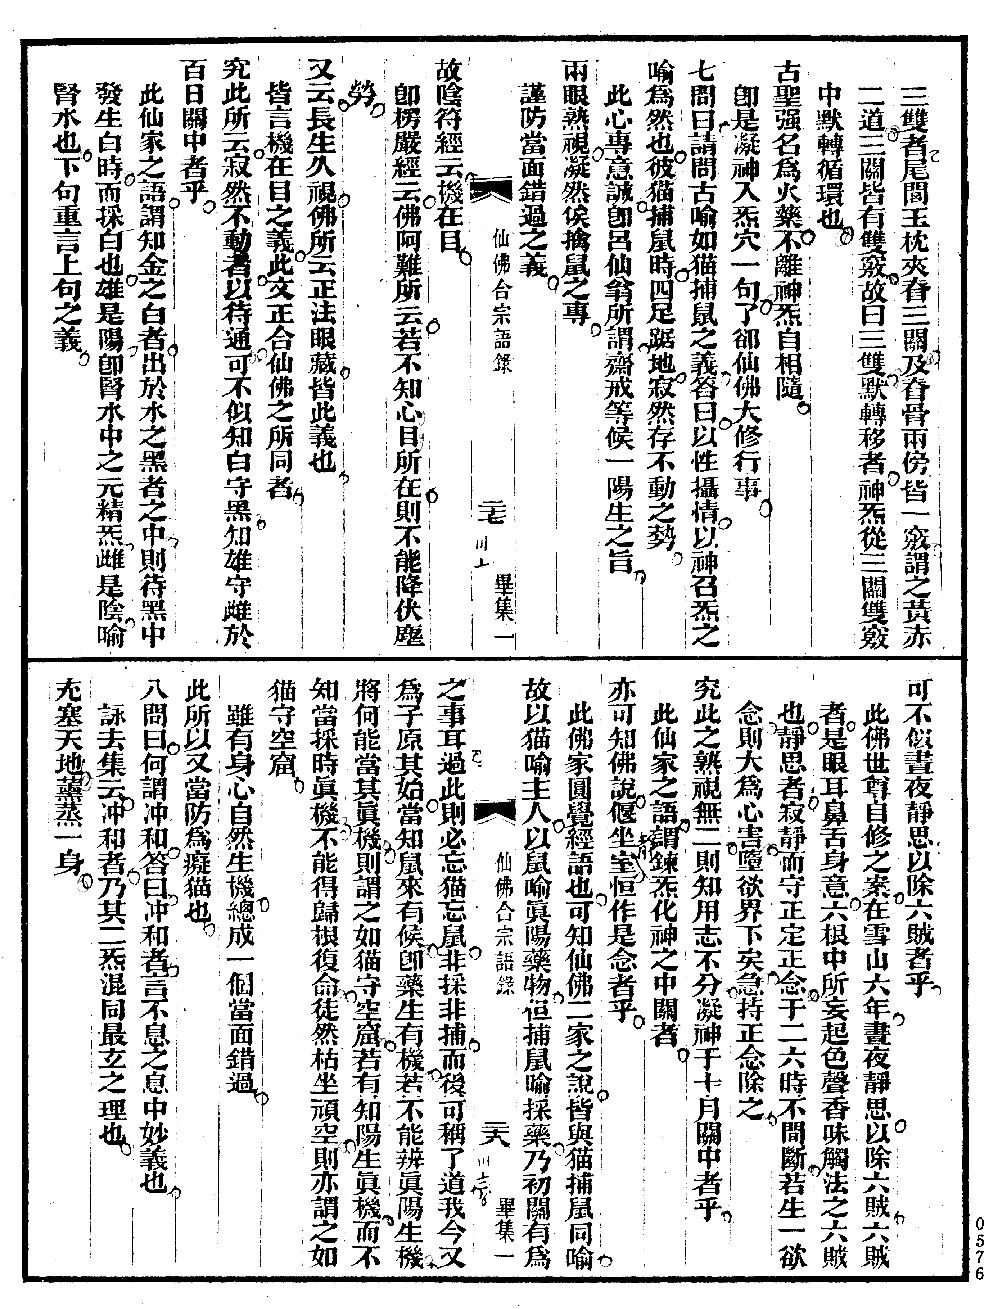 三雙者尾閭玉枕夾脊三關及脊骨兩傍皆一竅謂之黃赤
二道三關皆有雙竅故曰三雙默轉移者神炁從三關雙竅
中默轉循環也
古聖强名為火藥不離神炁自相隨
卽是凝神入炁穴一句了卻仙佛大修行事
七問曰請問古喻如猫捕鼠之義答曰以性攝情以神召炁之
喻為然也彼猫捕鼠時四足踞地寂然存不動之勢
此心專意誠卽呂仙翁所謂齋戒等候一陽生之旨
兩眼熟視凝然俟擒鼠之專
謹防當面錯過之義
仙佛合宗語錄 二十七 川上 畢集一
故陰符經云機在目
卽楞嚴經云佛阿難所云若不知心目所在則不能降伏塵
勞
又云長生久視佛所云正法眼藏皆此義也
皆言機在目之義此文正合仙佛之所同者
究此所云寂然不動者以待通可不似知白守黑知雄守雌於
百日關中者乎
此仙家之語謂知金之白者出於水之黑者之中則待黑中
發生白時而採白也雄是陽卽腎水中之元精炁雌是陰喻
腎水也下句重言上句之義
可不似晝夜靜思以除六賊者乎
此佛世尊自修之案在雪山六年晝夜靜思以除六賊六賊
者是眼耳鼻舌身意六根中所妄起色聲香味觸法之六賊
也靜思者寂靜而守正定正念于二六時不間斷若生一欲
念則大為心害墮欲界下矣急持正念除之
究此之熟視無二則知用志不分凝神于十月關中者乎
此仙家之語謂鍊炁化神之中關者
亦可知佛說偃坐靜室恒作是念者乎
此佛家圓覺經語也可知仙佛二家之說皆與猫捕鼠同喻
故以猫喻主人以鼠喻眞陽藥物但捕鼠喻採藥乃初關有為
仙佛合宗語錄 二十八 畢集一
之事耳過此則必忘猫忘鼠非採非捕而後可稱了道我今又
為子原其始當知鼠來有候卽藥生有機若不能辨眞陽生機
將何能當其眞機則謂之如猫守空窟若有知陽生眞機而不
知當採時眞機不能得歸根復命徒然枯坐頑空則亦謂之如
猫守空窟
雖有身心自然生機總成一個當面錯過
此所以又當防為癡猫也
八問曰何謂冲和答曰冲和者言不息之息中妙義也
詠去集云冲和者乃其二炁混同最玄之理也
充塞天地薰蒸一身
0576